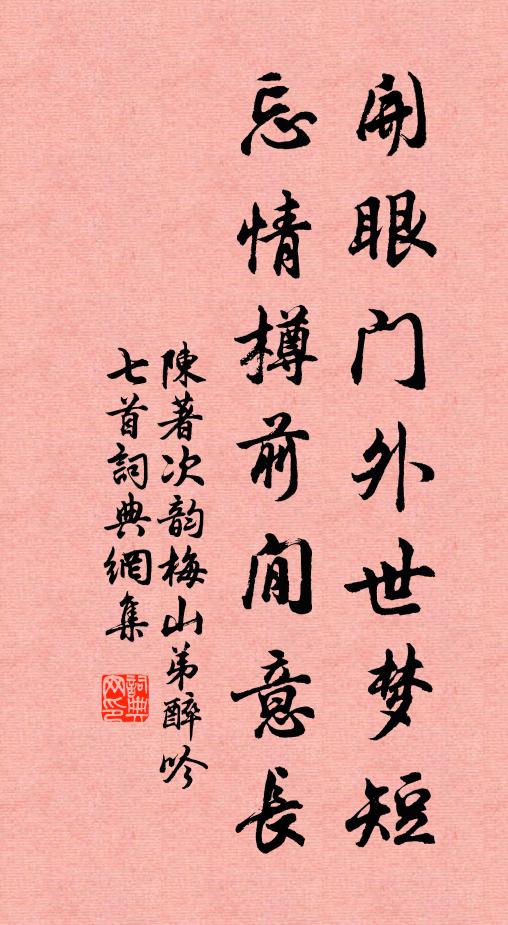 開眼门外世梦短
忘情樽前閒意長
陳著次韵梅山弟醉吟
七首詞典網集
詞典網印